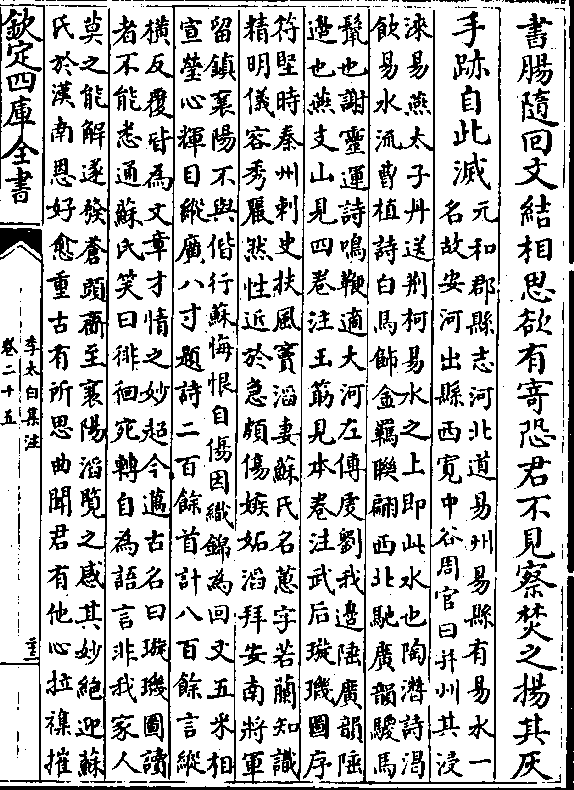 書腸隨回文結相思欲有寄恐君不見察焚之揚其灰
手跡自此滅
元和郡縣志河北道易州易縣有易水一
名故安河出縣西寬中谷周官曰并州其浸
淶易燕太子丹送荆柯易水之上即此水也陶潛詩渴
飲易水流曹植詩白馬飾金羈聯翩西北馳廣韻騣馬
鬛也謝靈運詩鳴鞭適大河左傳虔劉我邊陲廣韻陲
邊也燕支山見四卷注玉筯見本卷注武后璇璣圖序
符堅時秦州刺史扶風竇滔妻蘇氏名蕙字若蘭知識
精明儀容秀麗然性近於急頗傷嫉妬滔拜安南將軍
留鎮襄陽不與偕行蘇悔恨自傷因織錦為回文五采相
宣瑩心輝目縱廣八寸題詩二百餘首計八百餘言縱
橫反覆皆為文章才情之妙超今邁古名曰璇璣圖讀
者不能悉通蘇氏笑曰徘徊宛轉自為語言非我家人
莫之能解遂發蒼頭齎至襄陽滔覽之感其妙絶迎蘇
氏於漢南恩好愈重古有所思曲聞君有他心拉襍摧
欽定四庫全書
李太白集注
卷二十五